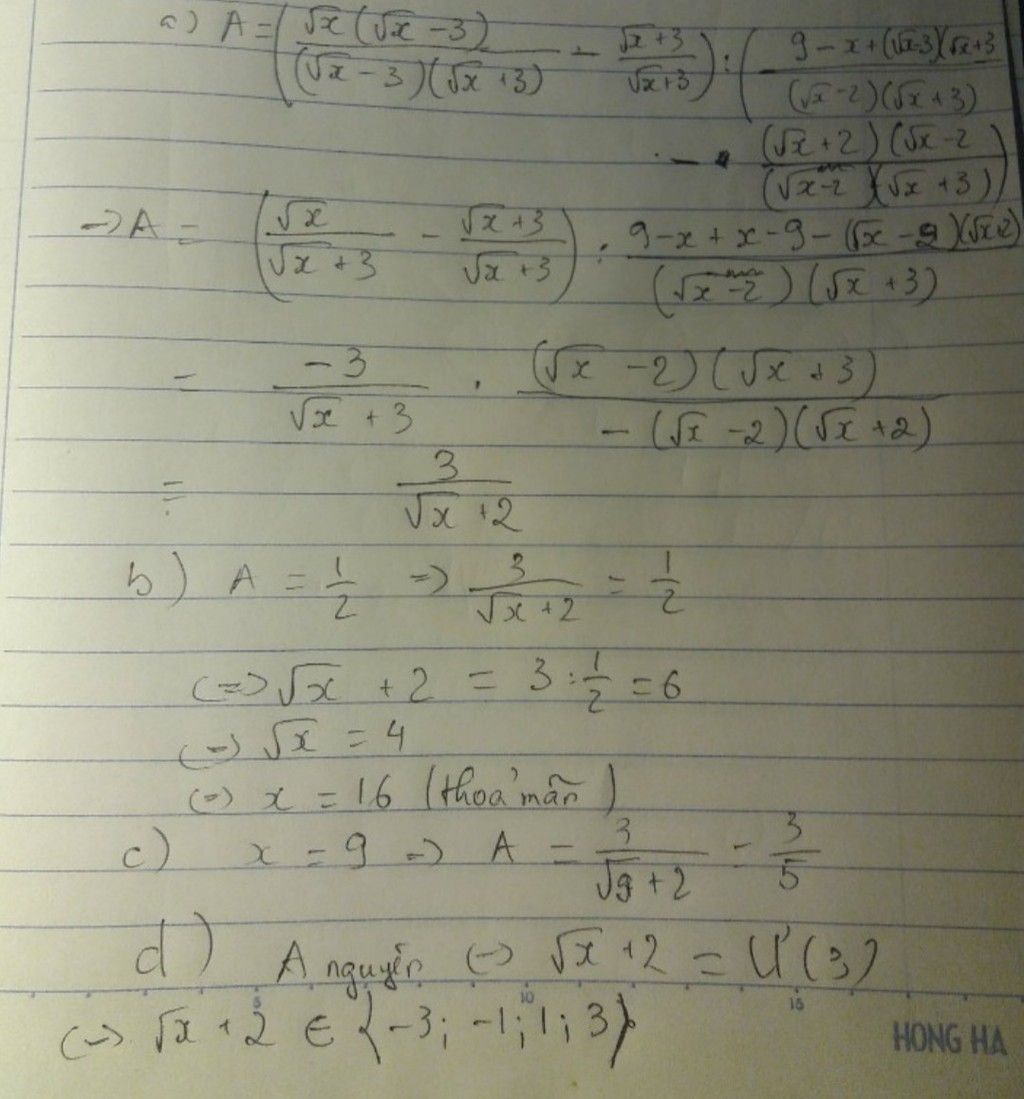 a) A = ( √x(√x - 3) / (√x - 3)(√x + 3) - √x + 3 / √x + 3 ) : ( 9 - x + (√x-3)(√x+3 / (√x - 2)(√x + 3)
- (√x + 2)(√x - 2 / (√x-2)(√x + 3) )
-> A = ( √x / √x + 3 - √x + 3 / √x + 3 ) : 9 - x + x - 9 - (√x - 2)(√x+2) / (√x - 2)(√x + 3)
= -3 / √x + 3 . (√x - 2)(√x + 3) / - (√x - 2)(√x + 2)
= 3 / √x + 2
b) A = 1/2 => 3 / √x + 2 = 1/2
<=> √x + 2 = 3 : 1/2 = 6
<=> √x = 4
<=> x = 16 (thoả mãn)
c) x = 9 => A = 3 / √9 + 2 = 3/5
d) A nguyên <=> √x + 2 = Ư(3)
5 10 15
<=> √x + 2 ∈ {-3; -1; 1; 3}
HONG HA